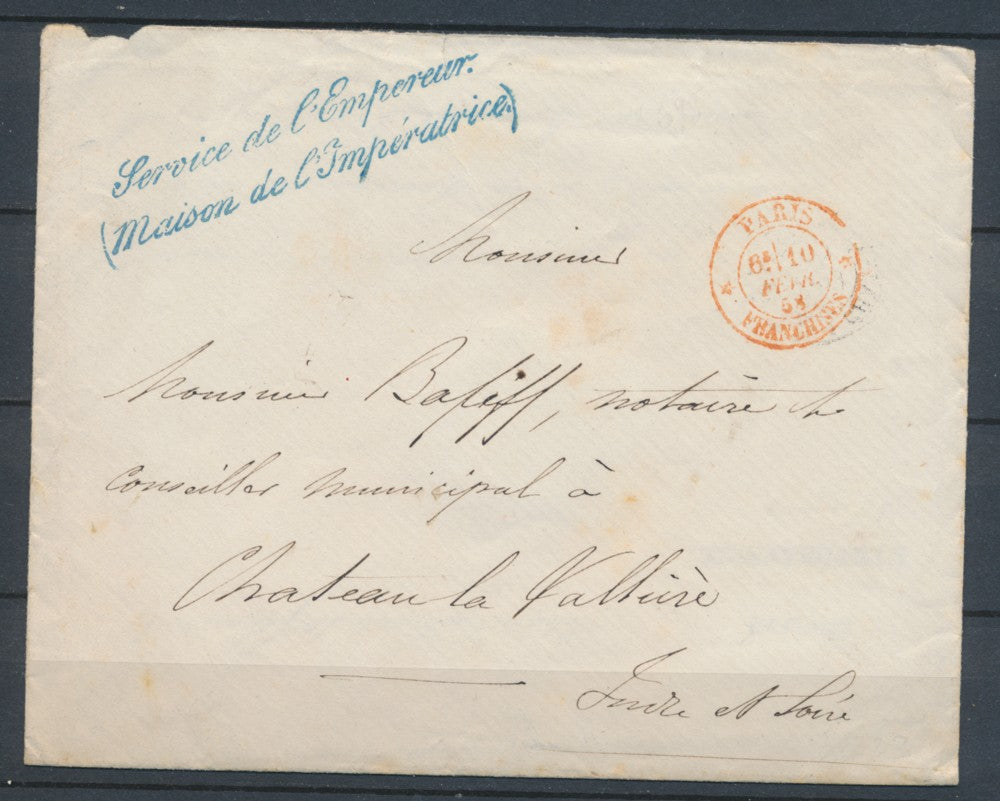 Service de l'Empereur.
(Maison de l'Impératrice)
PARIS
6E 10
FÉVR.
58
FRANCHISES
Monsieur
Monsieur notaire &
conseiller municipal à
Chateau la Vallière
Indre et Loire